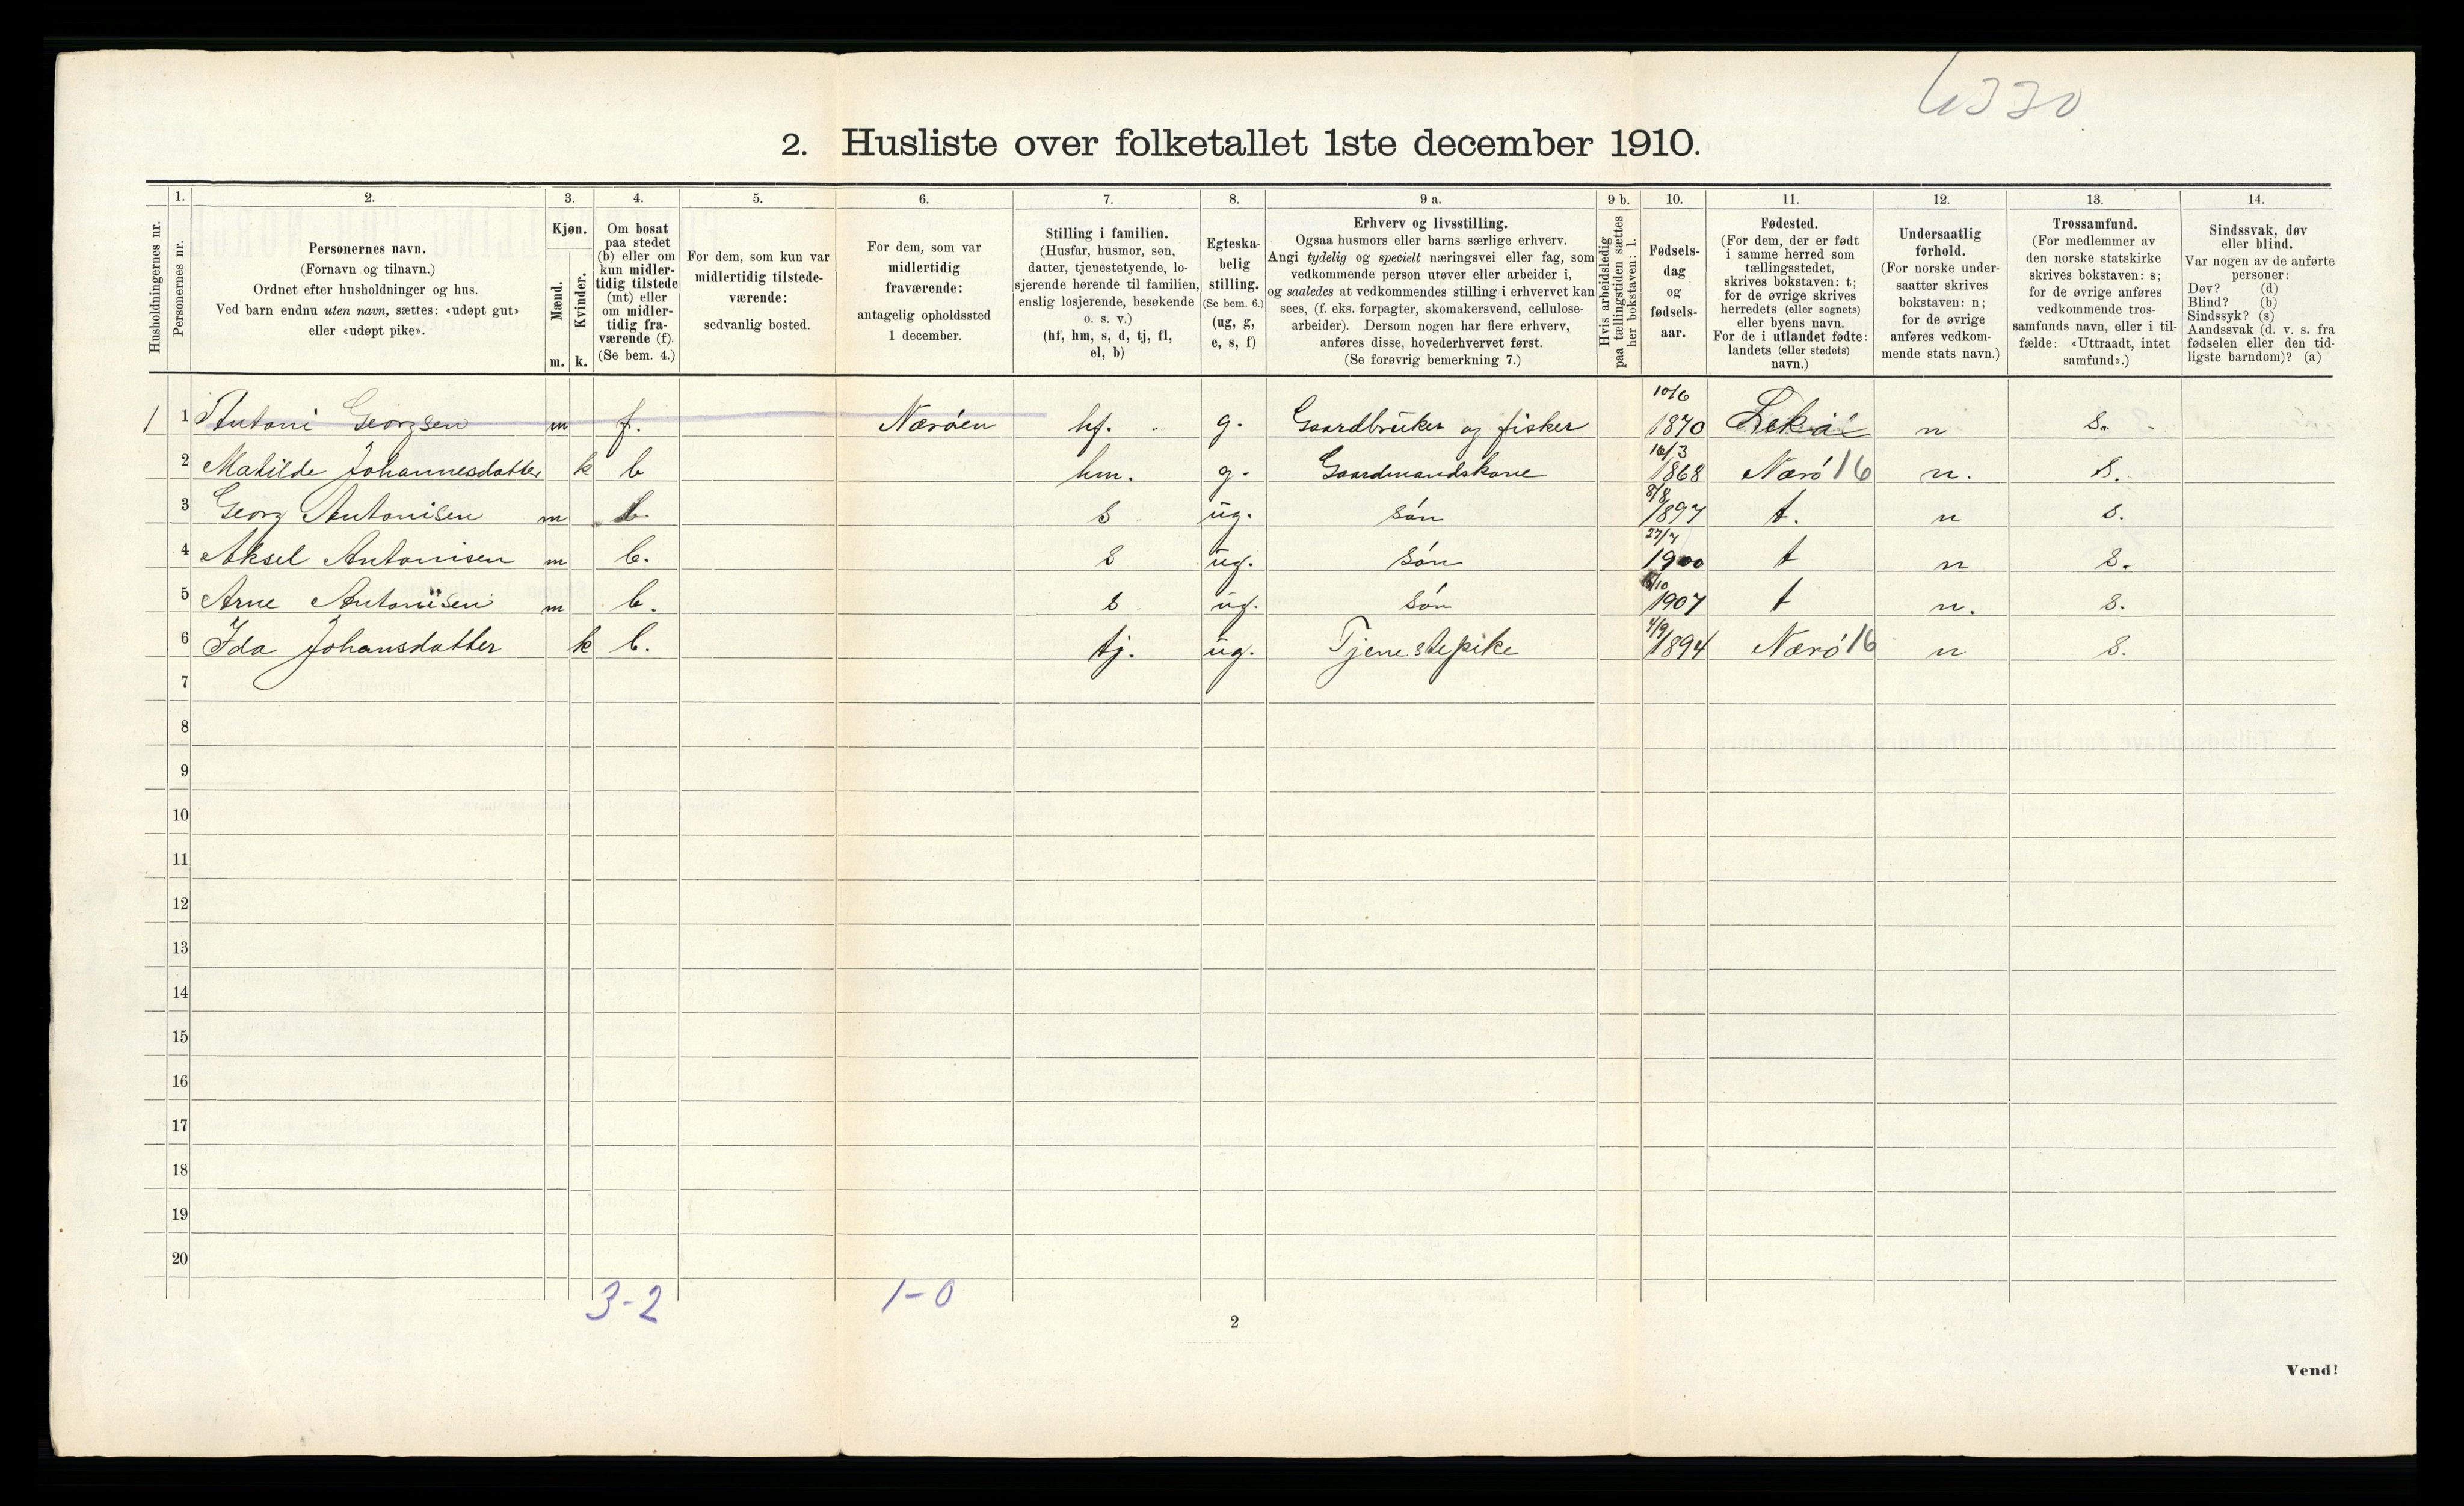 6330
2. Husliste over folketallet 1ste december 1910.
Husholdningernes nr.
1. Personernes nr.
2. Personernes navn. (Fornavn og tilnavn.) Ordnet efter husholdninger og hus. Ved barn endnu uten navn, sættes: «udøpt gut» eller «udøpt pike».
3. Kjøn. Mænd. m. Kvinder. k.
4. Om bosat paa stedet (b) eller om kun midlertidig tilstede (mt) eller om midlertidig fraværende (f). (Se bem. 4.)
5. For dem, som kun var midlertidig tilstedeværende: sedvanlig bosted.
6. For dem, som var midlertidig fraværende: antagelig opholdssted 1 december.
7. Stilling i familien. (Husfar, husmor, søn, datter, tjenestetyende, losjerende hørende til familien, enslig losjerende, besøkende o. s. v.) (hf, hm, s, d, tj, fl, el, b)
8. Egteskabelig stilling. (Se bem. 6.) (ug, g, e, s, f)
9 a. Erhverv og livsstilling. Ogsaa husmors eller barns særlige erhverv. Angi tydelig og specielt næringsvei eller fag, som vedkommende person utøver eller arbeider i, og saaledes at vedkommendes stilling i erhvervet kan sees, (f. eks. forpagter, skomakersvend, cellulosearbeider). Dersom nogen har flere erhverv, anføres disse, hovederhvervet først. (Se forøvrig bemerkning 7.)
9 b. Hvis arbeidsledig paa tællingstiden sættes her bokstaven: l.
10. Fødselsdag og fødselsaar.
11. Fødested. (For dem, der er født i samme herred som tællingsstedet, skrives bokstaven: t; for de øvrige skrives herredets (eller sognets) eller byens navn. For de i utlandet fødte: landets (eller stedets) navn.)
12. Undersaatlig forhold. (For norske undersaatter skrives bokstaven: n; for de øvrige anføres vedkommende stats navn.)
13. Trossamfund. (For medlemmer av den norske statskirke skrives bokstaven: s; for de øvrige anføres vedkommende trossamfunds navn, eller i tilfælde: «Uttraadt, intet samfund».)
14. Sindssvak, døv eller blind. Var nogen av de anførte personer: Døv? (d) Blind? (b) Sindssyk? (s) Aandssvak (d. v. s. fra fødselen eller den tidligste barndom)? (a)
1 1 Antoni Georgsen m f. Nærøen hf. g. Gaardbruker og fisker 10/6 1870 Leka n s.
2 Matilde Johannesdatter k b hm. g. Gaardmandskone 16/3 1868 Nærö 16 n. s.
3 Georg Antonisen m b. s ug. sön 8/8 1897 t. n s.
4 Aksel Antonisen m b. s ug. sön 27/7 1900 t n s.
5 Arne Antonisen m b. s ug. sön /10 1907 t n. s.
6 Ida Johansdatter k b. tj. ug. Tjenestepike 4/9 1894 Nærö 16 n s.
7
8
9
10
11
12
13
14
15
16
17
18
19
20
3-2 1-0
2
Vend!